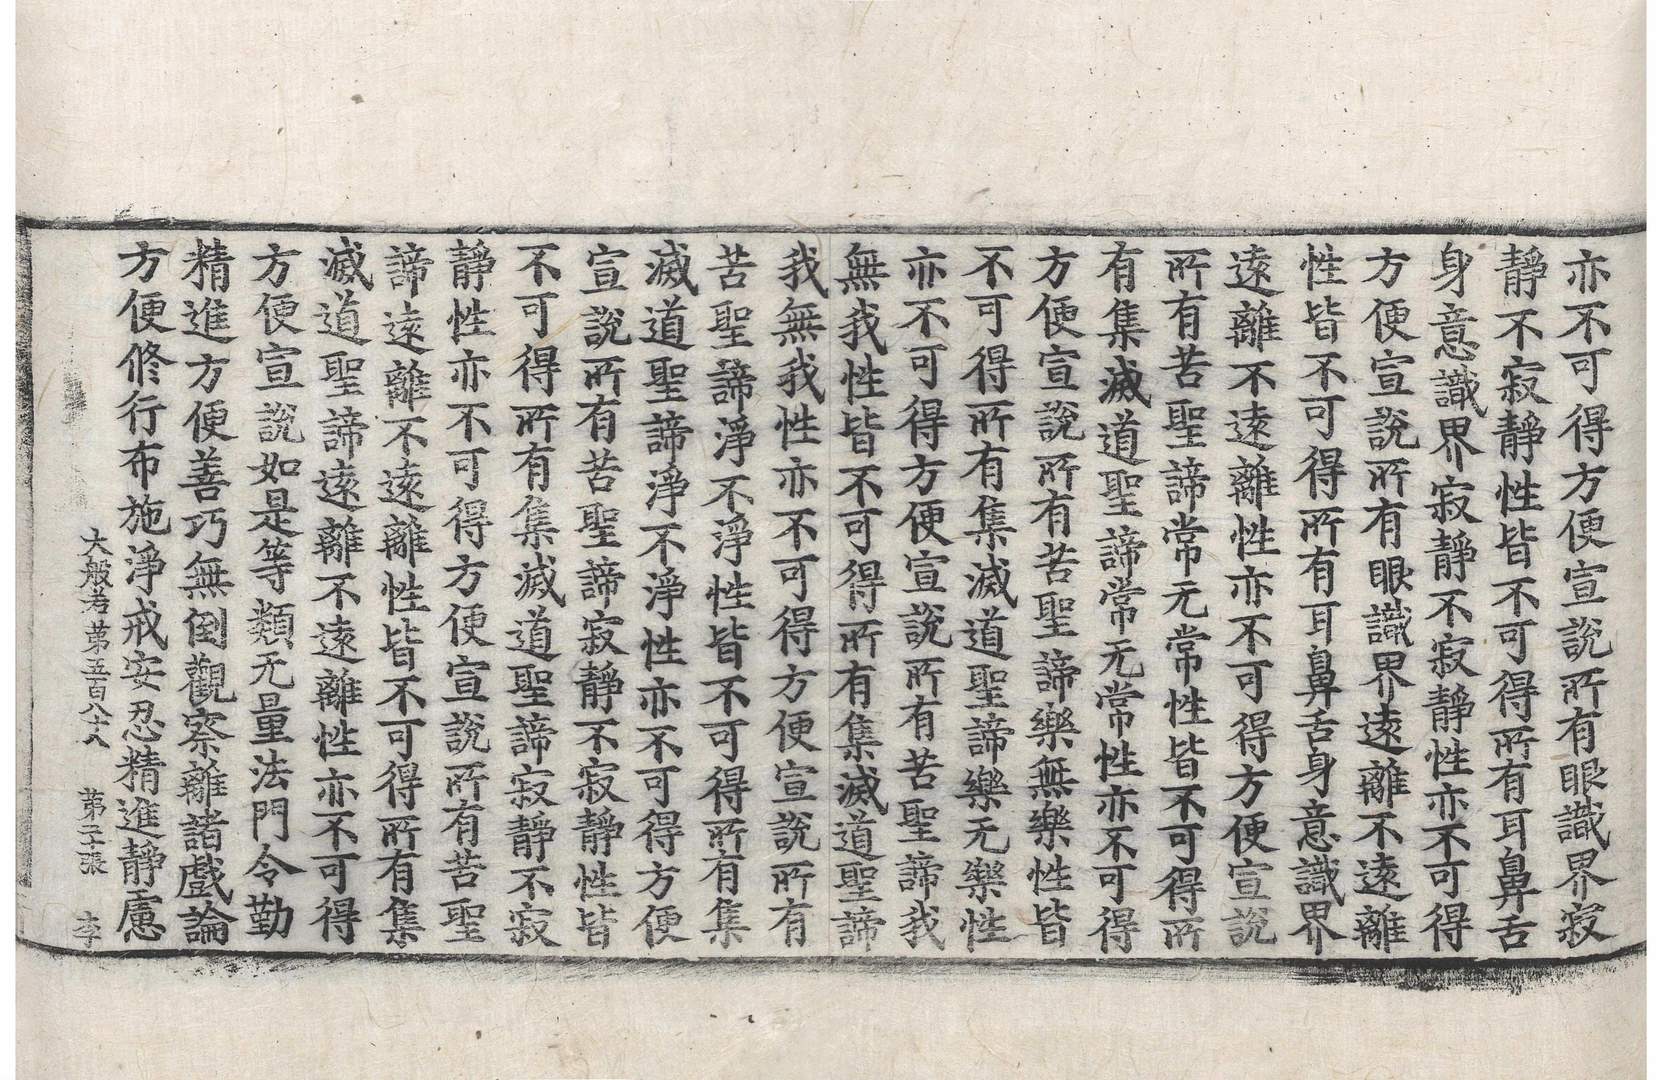 亦不可得方便宣說所有眼識界寂
靜不寂靜性皆不可得所有耳鼻舌
身意識界寂靜不寂靜性亦不可得
方便宣說所有眼識界遠離不遠離
性皆不可得所有耳鼻舌身意識界
遠離不遠離性亦不可得方便宣說
所有苦聖諦常无常性皆不可得所
有集滅道聖諦常无常性亦不可得
方便宣說所有苦聖諦樂無樂性皆
不可得所有集滅道聖諦樂无樂性
亦不可得方便宣說所有苦聖諦我
無我性皆不可得所有集滅道聖諦
我無我性亦不可得方便宣說所有
苦聖諦淨不淨性皆不可得所有集
滅道聖諦淨不淨性亦不可得方便
宣說所有苦聖諦寂靜不寂靜性皆
不可得所有集滅道聖諦寂靜不寂
靜性亦不可得方便宣說所有苦聖
諦遠離不遠離性皆不可得所有集
滅道聖諦遠離不遠離性亦不可得
方便宣說如是等類无量法門令勤
精進方便善巧無倒觀察離諸戲論
方便修行布施淨戒安忍精進靜慮
大般若第五百八十八 第二十張 李